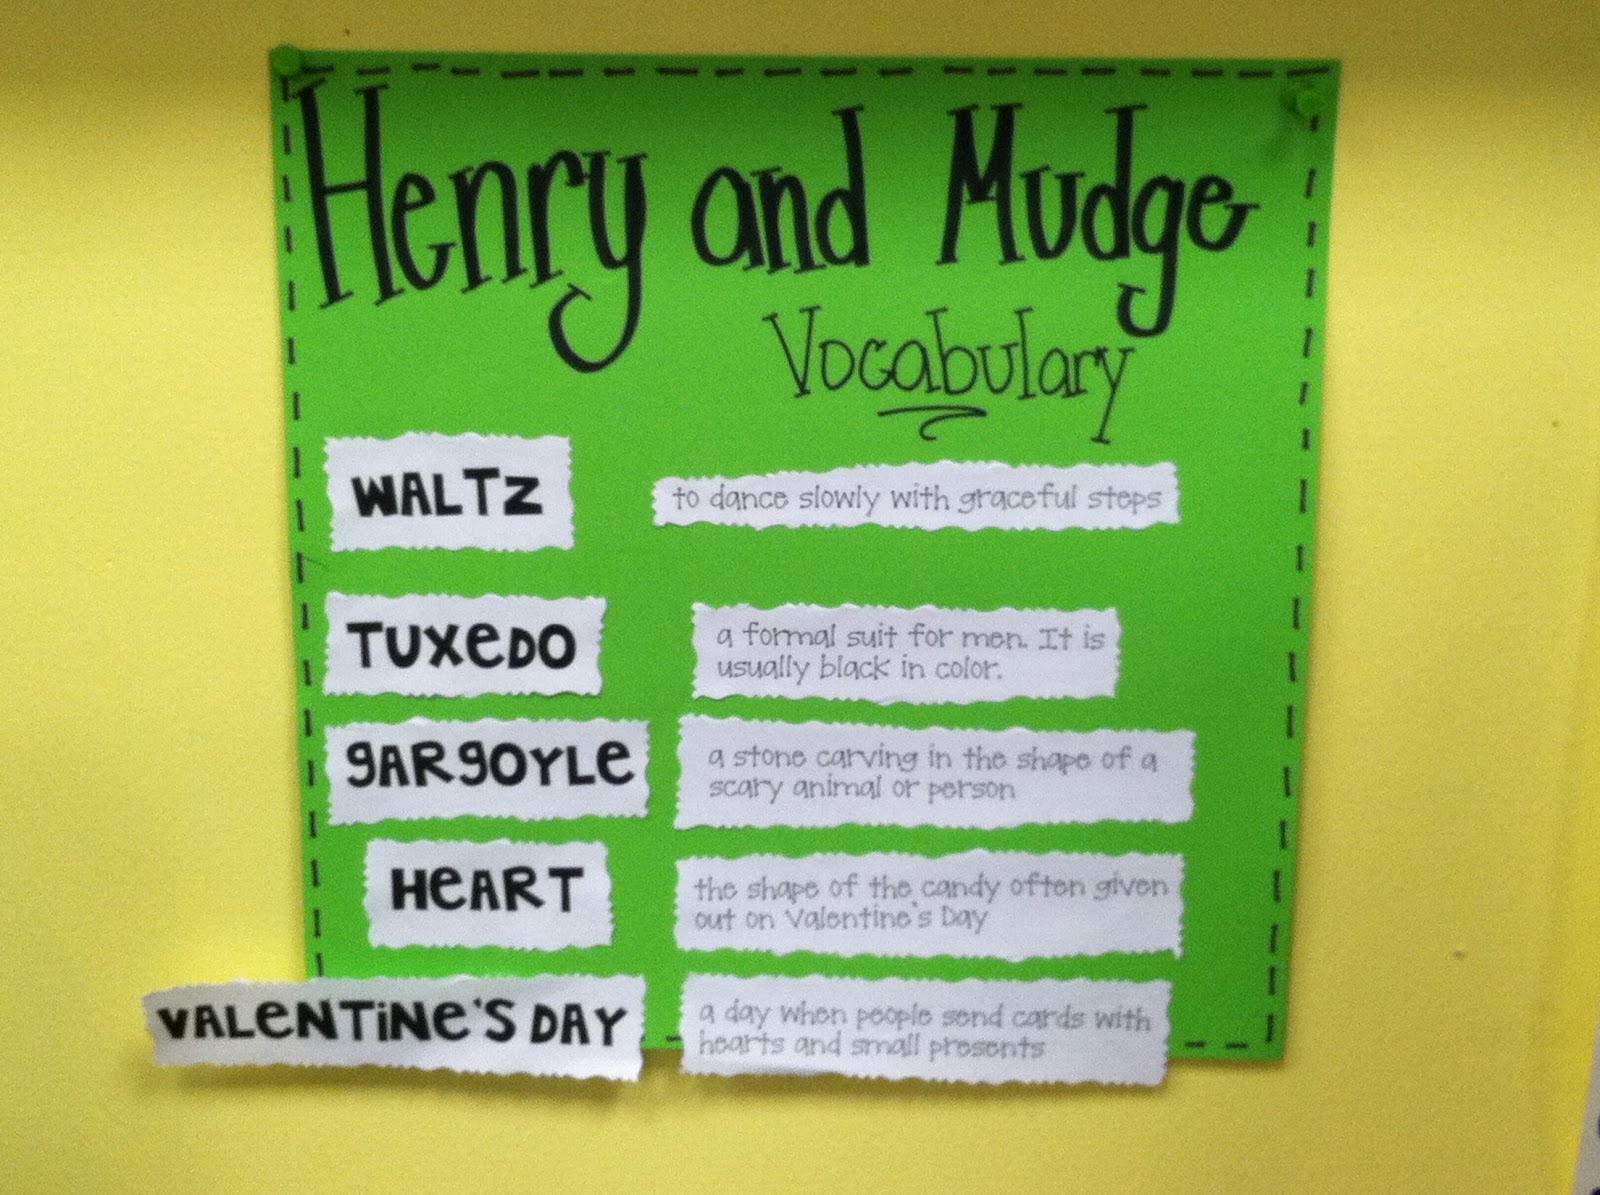 Henry and Mudge
Vocabulary
WALTZ
to dance slowly with graceful steps
TUXeDO
a formal suit for men. It is
usually black in color.
gARgOYLe
a stone carving in the shape of a
scary animal or person
HeART
the shape of the candy often given
out on Valentine's Day
VALeNTiNe'S DAY
a day when people send cards with
hearts and small presents